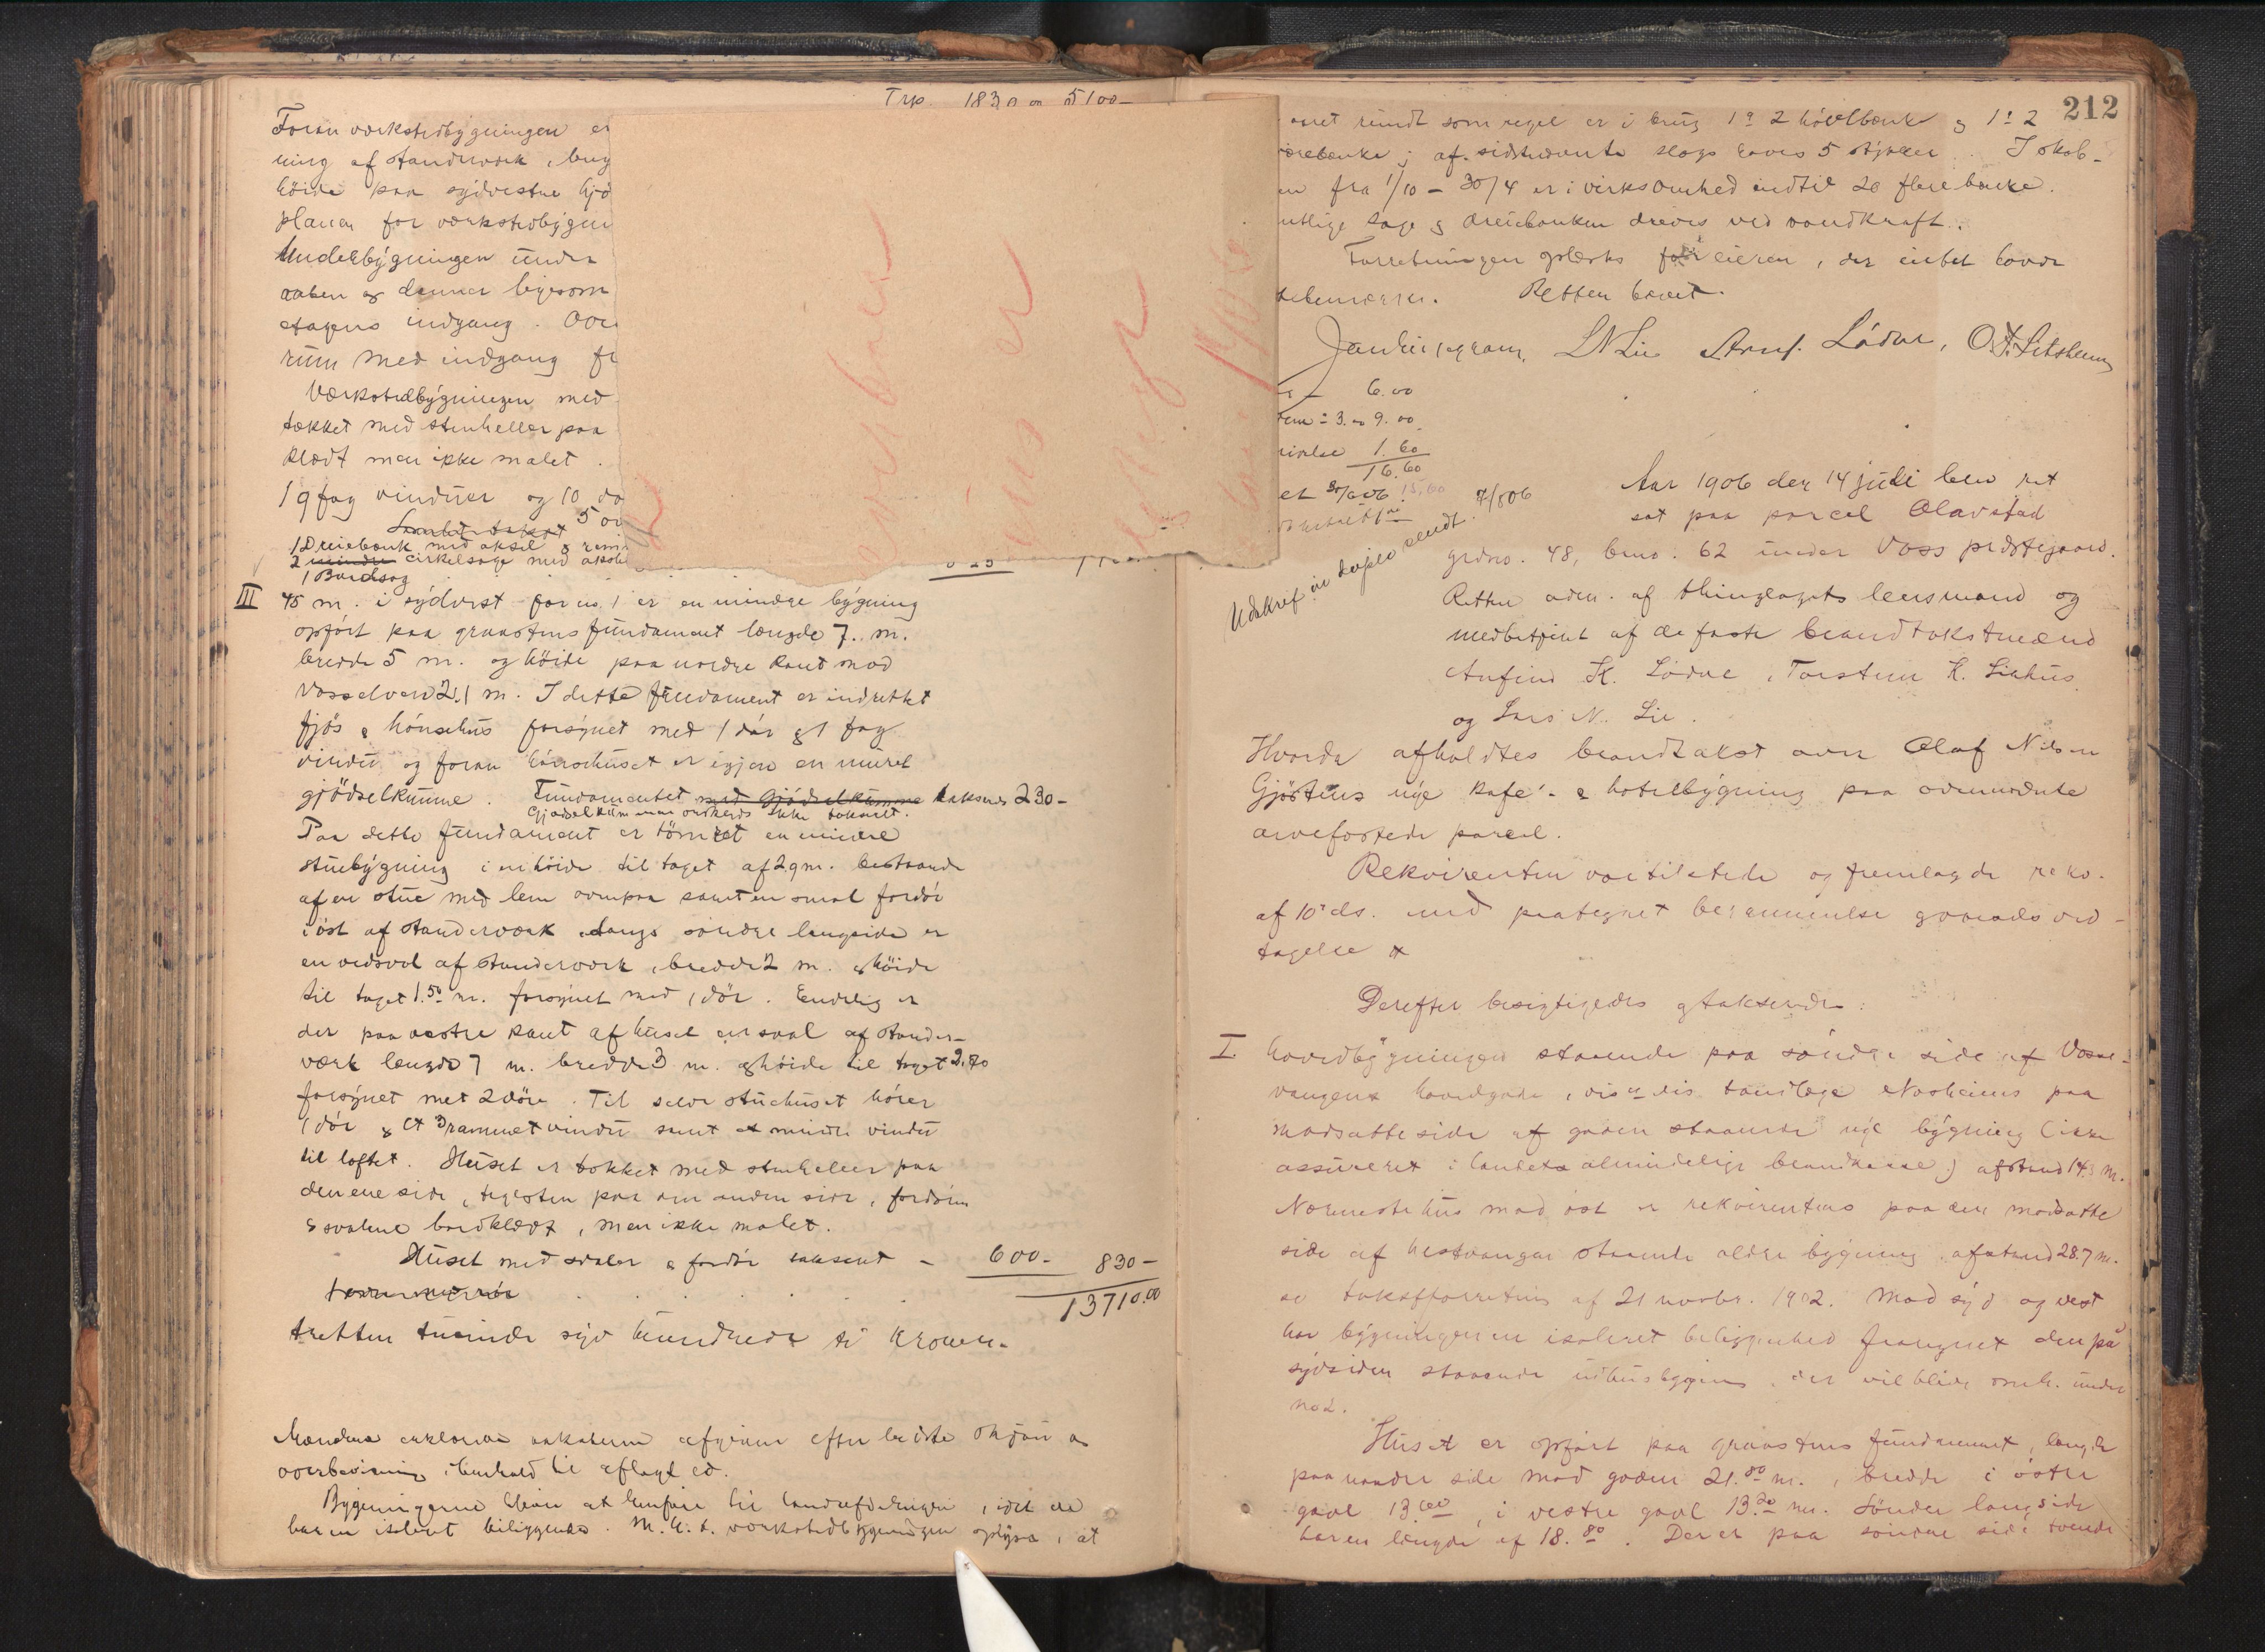 Trp. 1830 00 5100-
Foran værkstedbygningen er
ning af standerværk, breg
höide paa sydvestre hjö
planen for værkstedbygni
Underbygningen under
aaben og danner ligesom
etagens indgang. Ove
rum med indgang fr
Værkstedbygningen med
tækket med stenheller paa
klædt men ikke malet.
19 fag vinduer og 10 dö
5 ov
Samlet takst
1 Dreiebænk med aksel & remi
2 mindre cirkelsage med aksle
1 Baandsag
III 45 m. i sydvest for no. 1 er en mindre bygning
opført paa graastens fundament længde 7. m.
bredde 5 m. og höide paa nordre kant mod
Vosseelven 2.1 m. I dette fundament er indrettet
fjös & hönsehus forsynet med 1 dör & 1 fag
vindu og foran hönsehuset er igjen en muret
gjödselkumme. Fundamentet med gjödselkumme takseres 230-
Gjödselkummen önskes ikke takseret.
Paa dette fundament er tömret en mindre
stuebygning i en höide til taget af 2.9 m. bestaaende
af en stue med lem ovenpaa samt en smal fordör
i öst af standerværk. Langs söndre langside er
en vedsval af standerværk, bredde 2 m. & höide
til taget 1.50 m. forsynet med 1 dör. Endelig er
der paa vestre kant af huset en sval af stander-
værk længde 7 m. bredde 3 m. & höide til taget 2.70
forsynet met 2 döre. Til selve stuehuset hörer
1 dör & et 3 rammet vindu samt et mindre vindu
til loftet. Huset er tækket med stenheller paa
den ene side, tegelsten paa den anden side, fordören
& svalene bordklædt, men ikke malet.
Huset med svaler & fordör takseret - 600- 830-
13710.00
tretten tusinde syv hundrede ti kroner.
Mændene erklærede taksterne afgivne efter bedste skjön og
overbevisning i henhold til aflagt ed.
Bygningerne bliver at henföre til landafdelingen, idet de
har en isoleret beliggenhed. M. h. t. værkstedbygningen oplyses, at
212
aaret rundt som regel er i brug 1 a 2 hövelbænke & 1 a 2
dreiebænke; af sidstnævnte slags haves 5 stykker. I skob-
en fra 1/10 - 30/4 er i virksomhed indtil 20 flere bænke.
ntlige sage & dreiebænken drives ved vandkraft.
Forretningen oplæstes for eieren, der intet havde
at bemærke. Retten hævet.
L N Lie Arnf. Lödve, O.
6.00
3. 00 9.00
1.60
16.60
7/8 06
Udskrift in duplo sendt
Aar 1906 den 14 juli blev ret
sat paa parcel Olavstad
grdno. 48, brno. 62 under Voss prestegaard.
Retten adm. af thinglagets lensmand og
medbetjent af de faste brandtakstmænd
Anfind K. Lödve, Torstein K. Liahus
og Lars N. Lie.
Hvorda afholdtes brandtakst over Olaf Nilsen
Gjöstens nye kafé- & hotelbygning paa ovennævnte
arvefæstede parcel.
Rekvirenten var tilstede og fremlagde rekv.
af 10 ds. med paategnet berammelse & lovedes ved-
tagelse
Derefter besigtigedes & takseredes:
I. Hovedbygningen staaende paa söndre side af Vosse-
vangens hovedgade, vis a vis tandlæge Nesheims paa
modsatte side af gaden staaende nye bygning (ikke
assureret i landets almindelige brandkasse) afstand 14.3 m.
Nærmeste hus mod öst er rekvirentens paa den modsatte
side af Hestvangen staaende ældre bygning, afstand 28.7 m.
se takstforretning af 21 novbr. 1902. Mod syd og vest
har bygningen en isoleret beliggenhed fraregnet den på
sydsiden staaende udhusbygning der vil blive omh. under
no 2.
Huset er opfört paa graastens fundament, længde
paa nordre side mod gaden 21.80 m., bredde i östre
gavl 13.60, i vestre gavl 13.20 m. Söndre langside
har en længde af 18.80. Der er paa söndre side tvende